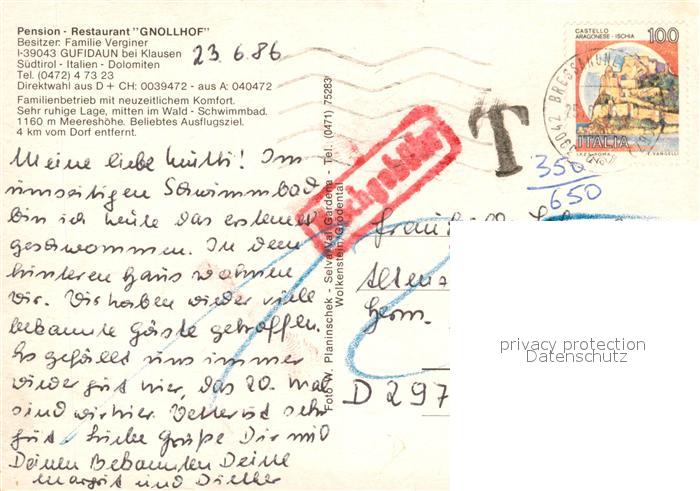 Pension - Restaurant "GNOLLHOF"
Besitzer: Familie Verginer
I-39043 GUFIDAUN bei Klausen
Südtirol - Italien - Dolomiten
Tel. (0472) 4 73 23
Direktwahl aus D + CH: 0039472 - aus A: 040472
Familienbetrieb mit neuzeitlichem Komfort.
Sehr ruhige Lage, mitten im Wald - Schwimmbad.
1160 m Meereshöhe. Beliebtes Ausflugsziel.
4 km vom Dorf entfernt.
23.6.86
Meine liebe Mutti! Im
Schwimmbad
bin ich heute das
geschwommen. In dem
hinteren Haus wohnen
wir. Wir haben wieder viele
bekannte Gäste getroffen.
Es gefällt uns immer
wieder gut hier, das 20. Mal
sind wir hier. Wetter ist sehr
gut. Liebe Grüße Dir mit
Deinen Bekannten Deine
Margrit und Dieter
Foto W. Planinschek - Selva/Val Gardena - Tel. (0471) 75283
Wolkenstein/Grödental
CASTELLO
ARAGONESE - ISCHIA
100
ITALIA
39042 BRESSANONE
T
350
650
Frau
Herm.
D 297
privacy protection
Datenschutz